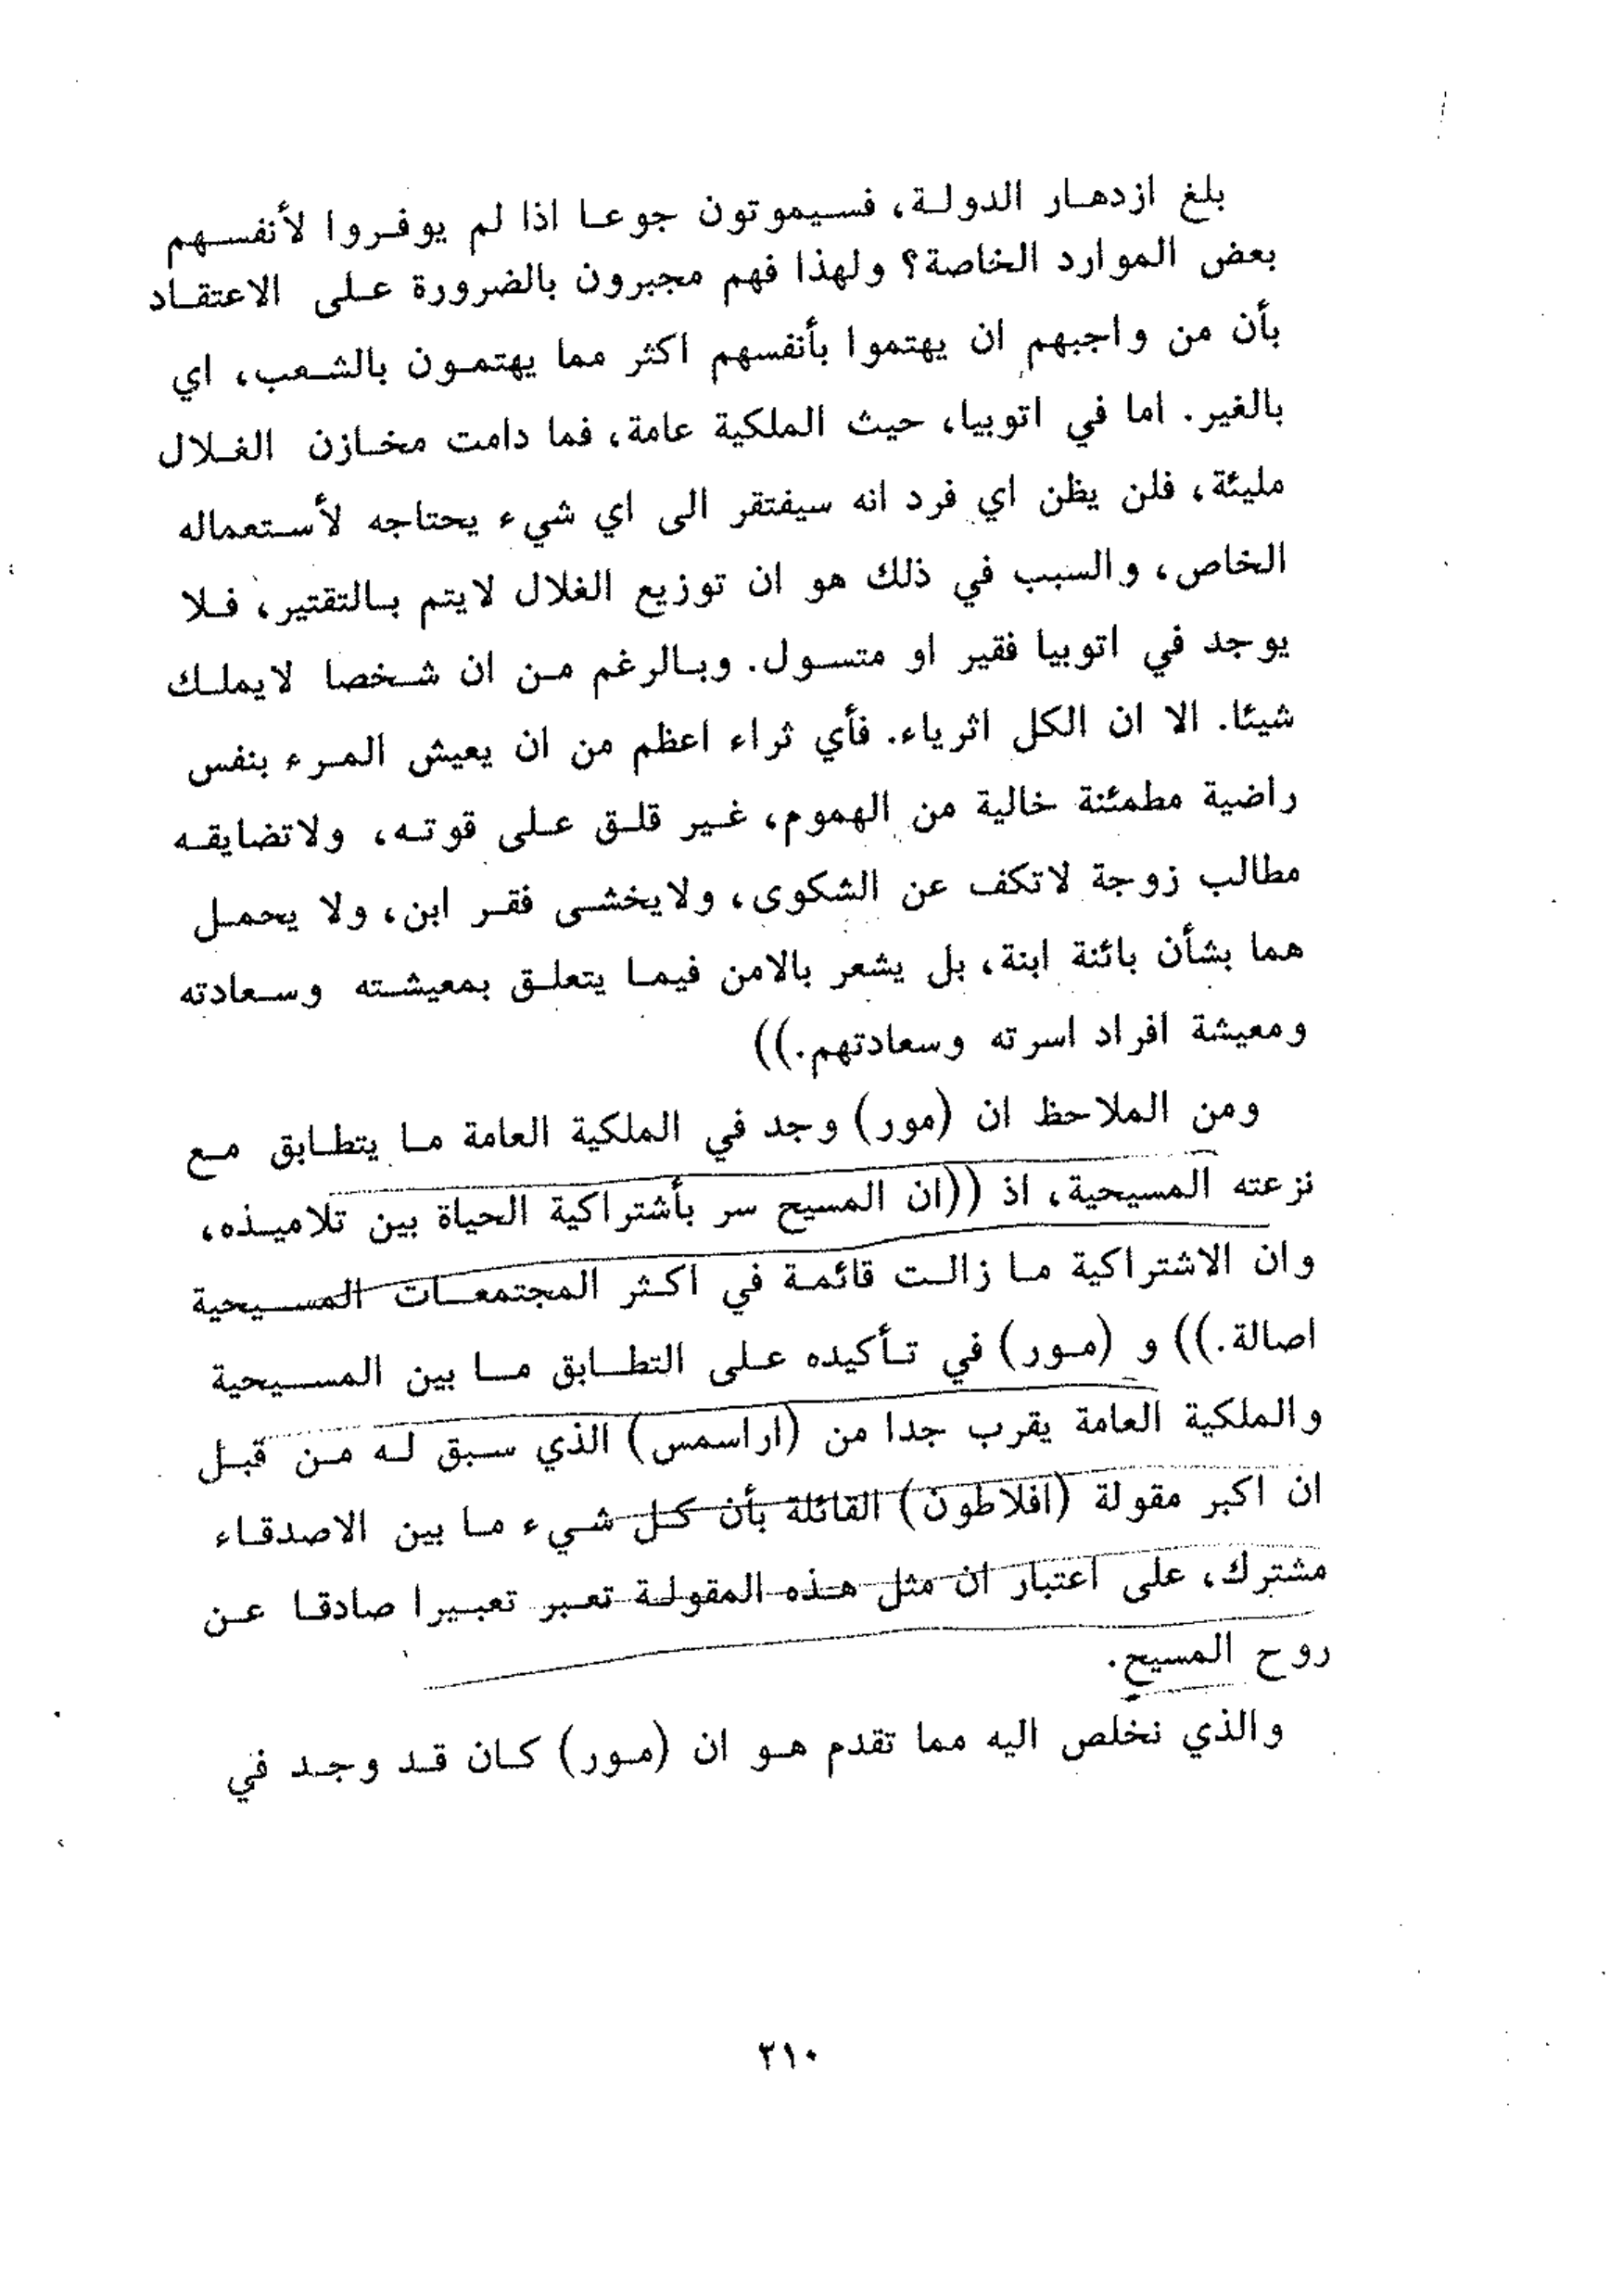 بلغ ازدهار الدولة، فسيموتون جوعا اذا لم يوفروا لأنفسهم
بعض الموارد الخاصة؟ ولهذا فهم مجبرون بالضرورة على الاعتقاد
بأن من واجبهم ان يهتموا بأنفسهم اكثر مما يهتمون بالشعب، اي
بالغير. اما في اتوبيا، حيث الملكية عامة، فما دامت مخازن الغلال
مليئة، فلن يظن اي فرد انه سيفتقر الى اي شيء يحتاجه لأستعماله
الخاص، والسبب في ذلك هو ان توزيع الغلال لايتم بالتقتير، فلا
يوجد في اتوبيا فقير او متسول. وبالرغم من ان شخصا لايملك
شيئا. الا ان الكل اثرياء. فأي ثراء اعظم من ان يعيش المرء بنفس
راضية مطمئنة خالية من الهموم، غير قلق على قوته، ولاتضايقه
مطالب زوجة لاتكف عن الشكوى، ولايخشى فقر ابن، ولا يحمل
هما بشأن بائنة ابنة، بل يشعر بالامن فيما يتعلق بمعيشته وسعادته
ومعيشة افراد اسرته وسعادتهم.))
ومن الملاحظ ان (مور) وجد في الملكية العامة ما يتطابق مع
نزعته المسيحية، اذ ((ان المسيح سر بأشتراكية الحياة بين تلاميذه،
وان الاشتراكية ما زالت قائمة في اكثر المجتمعات المسيحية
اصالة.)) و (مور) في تأكيده على التطابق ما بين المسيحية
والملكية العامة يقرب جدا من (اراسمس) الذي سبق له من قبل
ان اكبر مقولة (افلاطون) القائلة بأن كل شيء ما بين الاصدقاء
مشترك، على اعتبار ان مثل هذه المقولة تعبر تعبيرا صادقا عن
روح المسيح.
والذي نخلص اليه مما تقدم هو ان (مور) كان قد وجد في
٢١٠